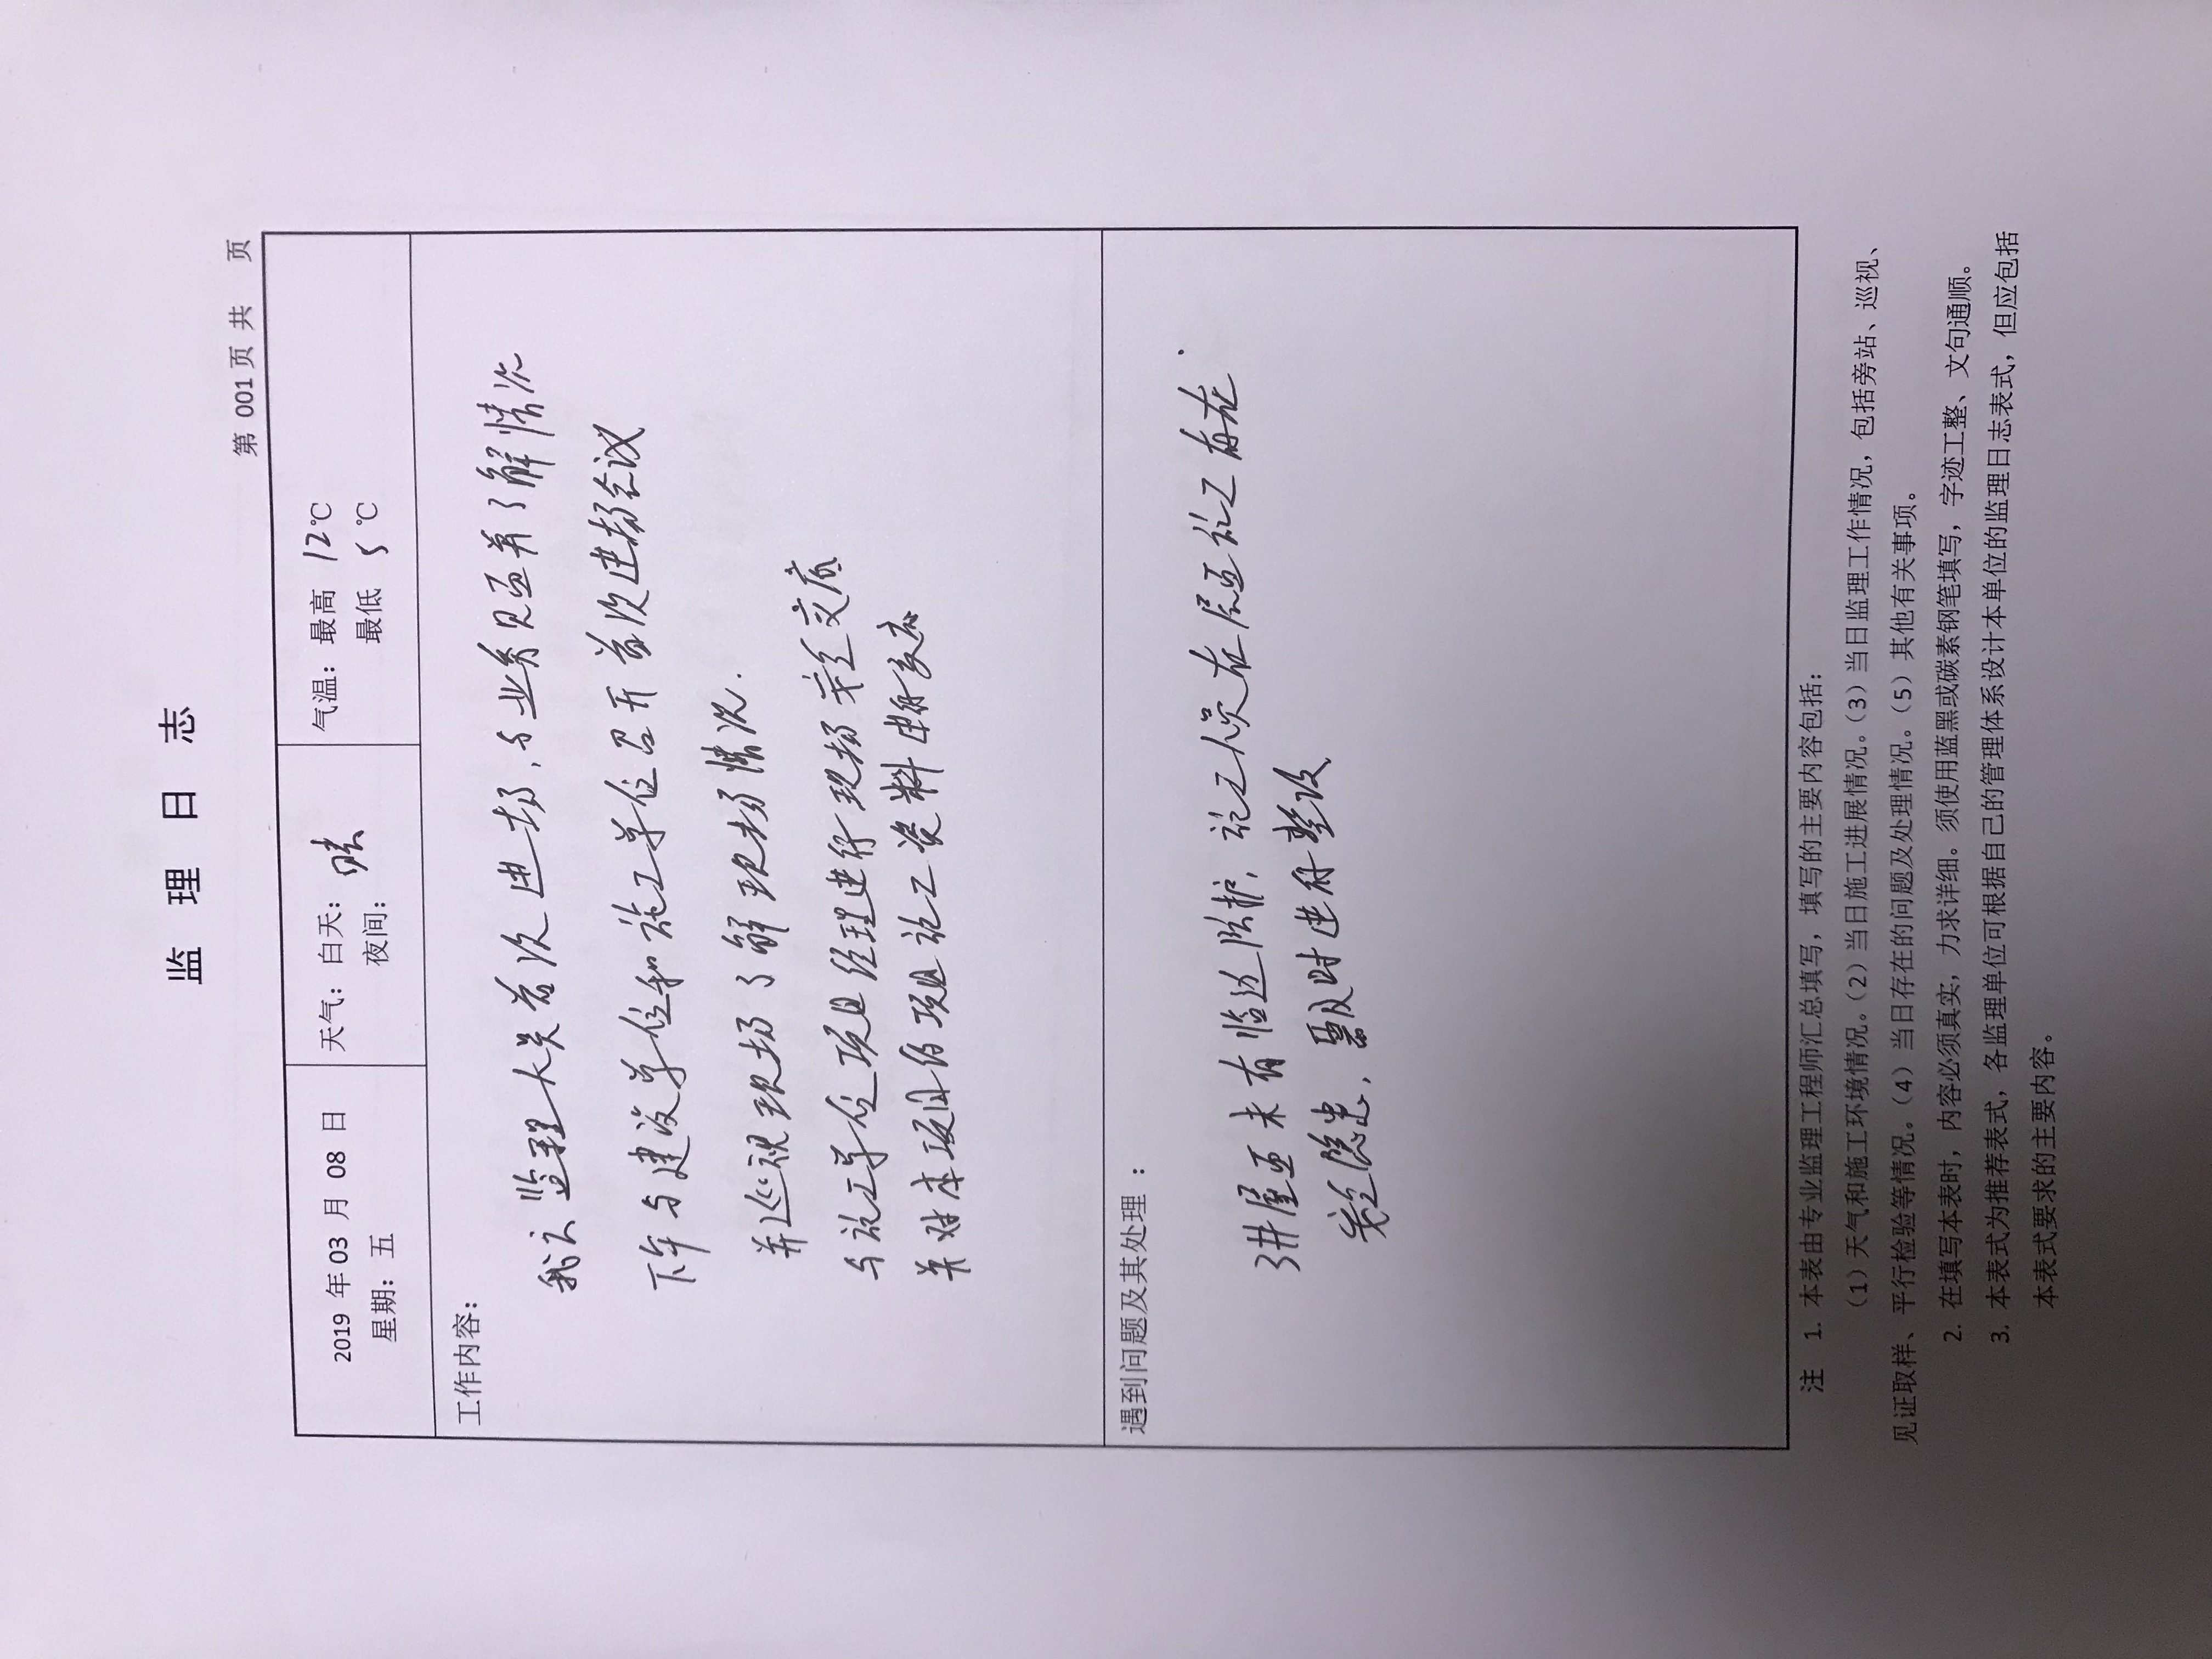 监 理 日 志
第 001页 共 页
2019 年 03 月 08 日
星期：五
天气：白天：晴
夜间：
气温：最高 12℃
最低 5℃
工作内容：
监理人员首次进场，与业务见面并了解情况
下午与建设单位和施工单位召开首次进场会议
并巡视现场了解现场情况.
与施工单位项目经理进行现场安全交底
并对本项目的项目施工资料进行
遇到问题及其处理 ：
3#屋面未有临边防护，施工人员在屋面施工存在
安全隐患，要及时进行整改
注 1. 本表由专业监理工程师汇总填写，填写的主要内容包括：
（1）天气和施工环境情况。（2）当日施工进展情况。（3）当日监理工作情况，包括旁站、巡视、
见证取样、平行检验等情况。（4）当日存在的问题及处理情况。（5）其他有关事项。
2. 在填写本表时，内容必须真实，力求详细。须使用蓝黑或碳素钢笔填写，字迹工整、文句通顺。
3. 本表式为推荐表式，各监理单位可根据自己的管理体系设计本单位的监理日志表式，但应包括
本表式要求的主要内容。